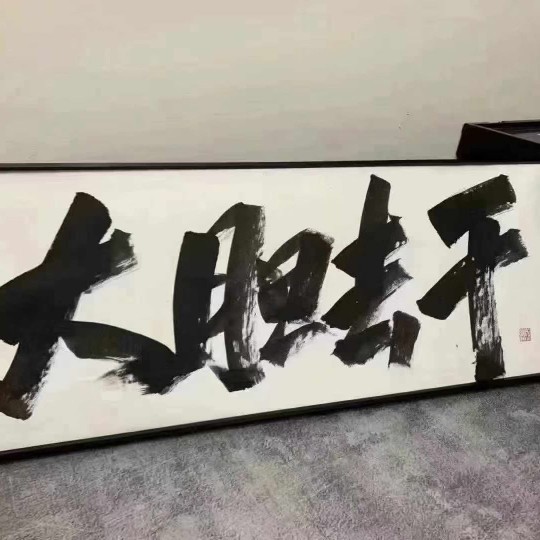 大胆去干